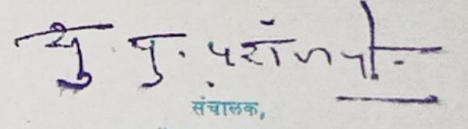 यु. पु. परांजपे
संचालक,